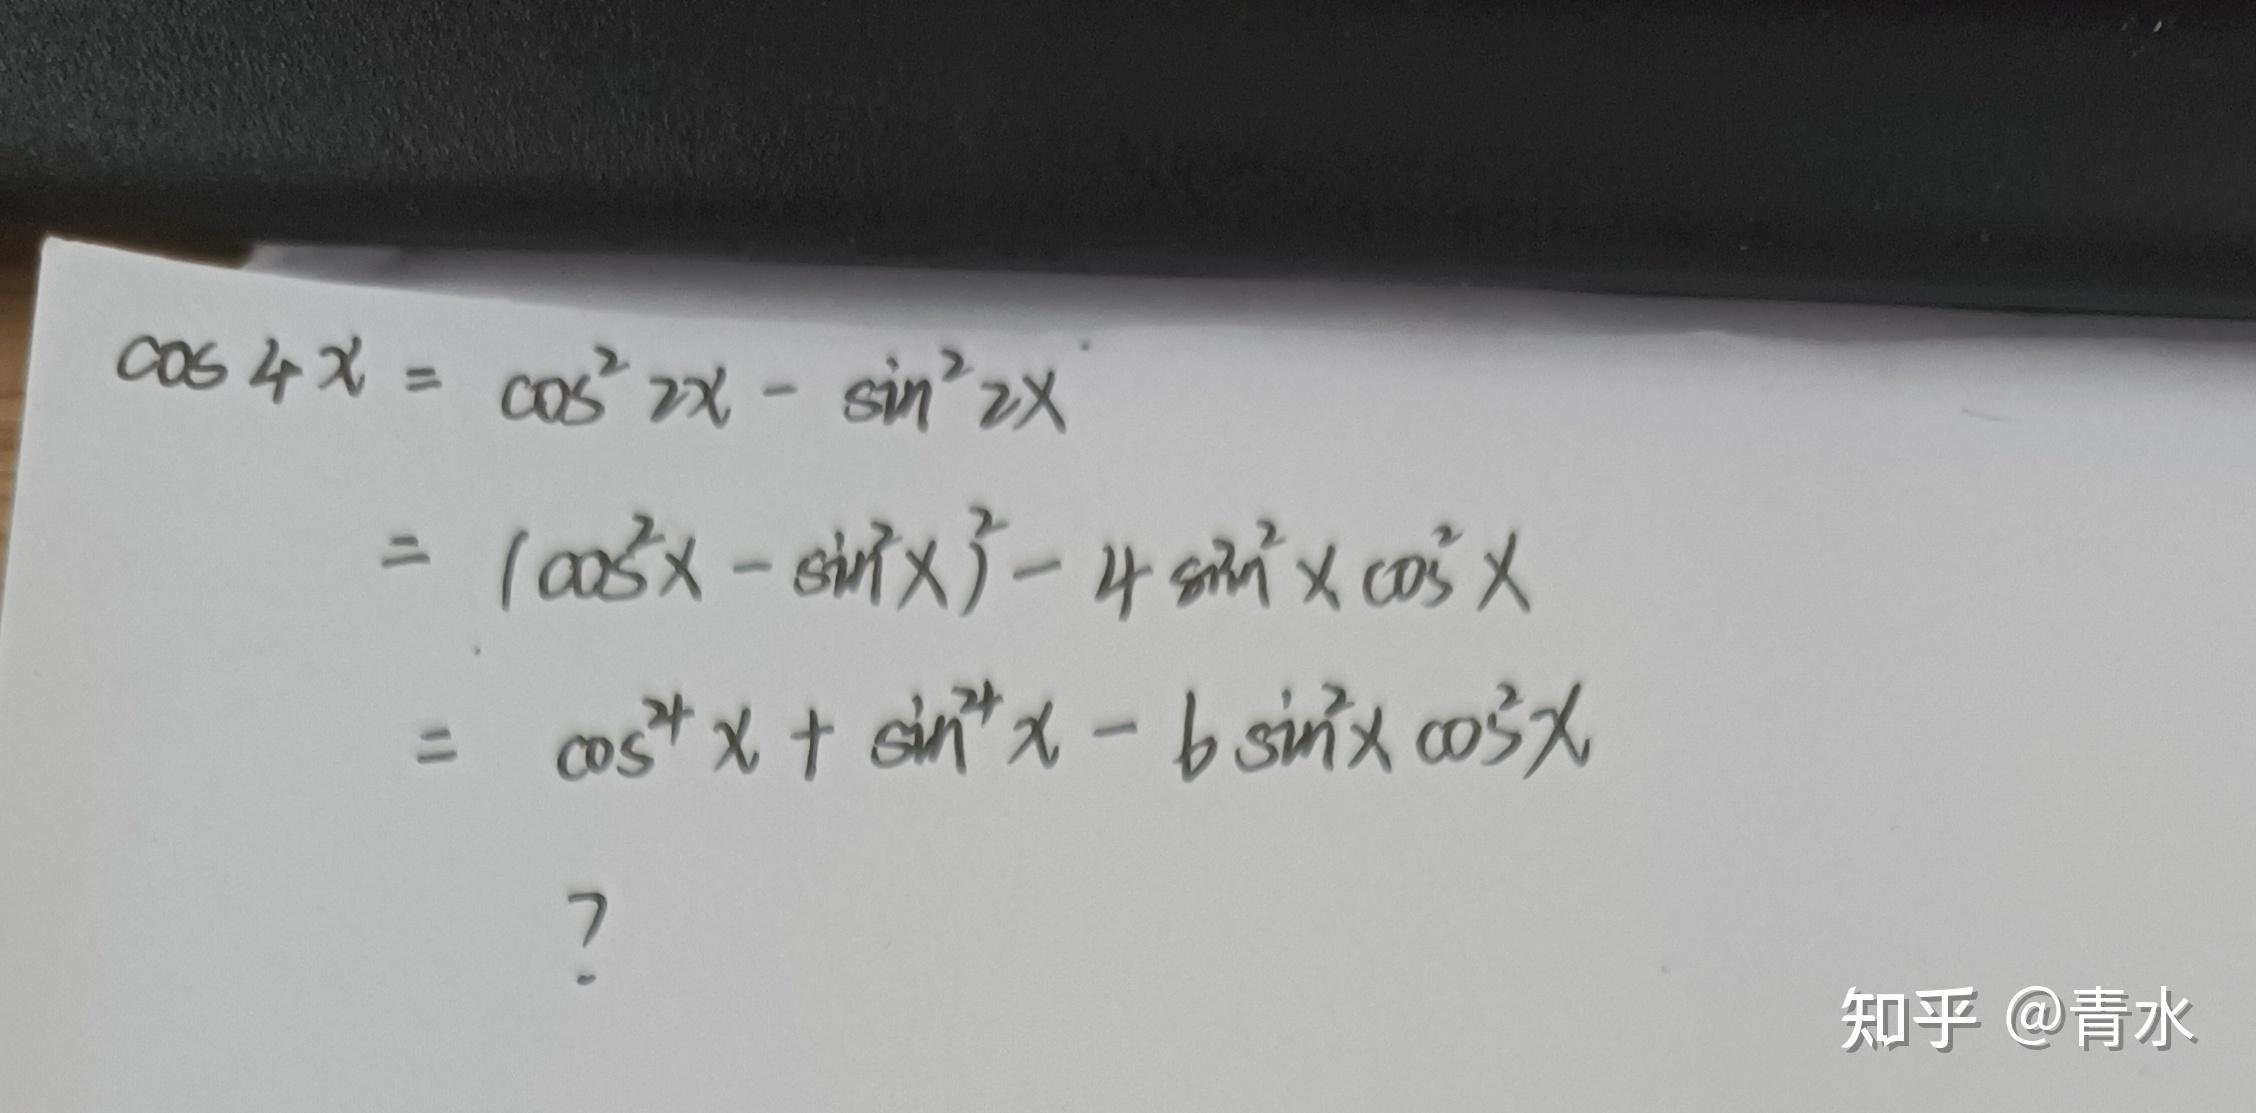 cos 4x = cos² 2x - sin² 2x
= (cos²x - sin²x)² - 4 sin²x cos²x
= cos⁴x + sin⁴x - 6 sin²x cos²x
?
知乎 @青水